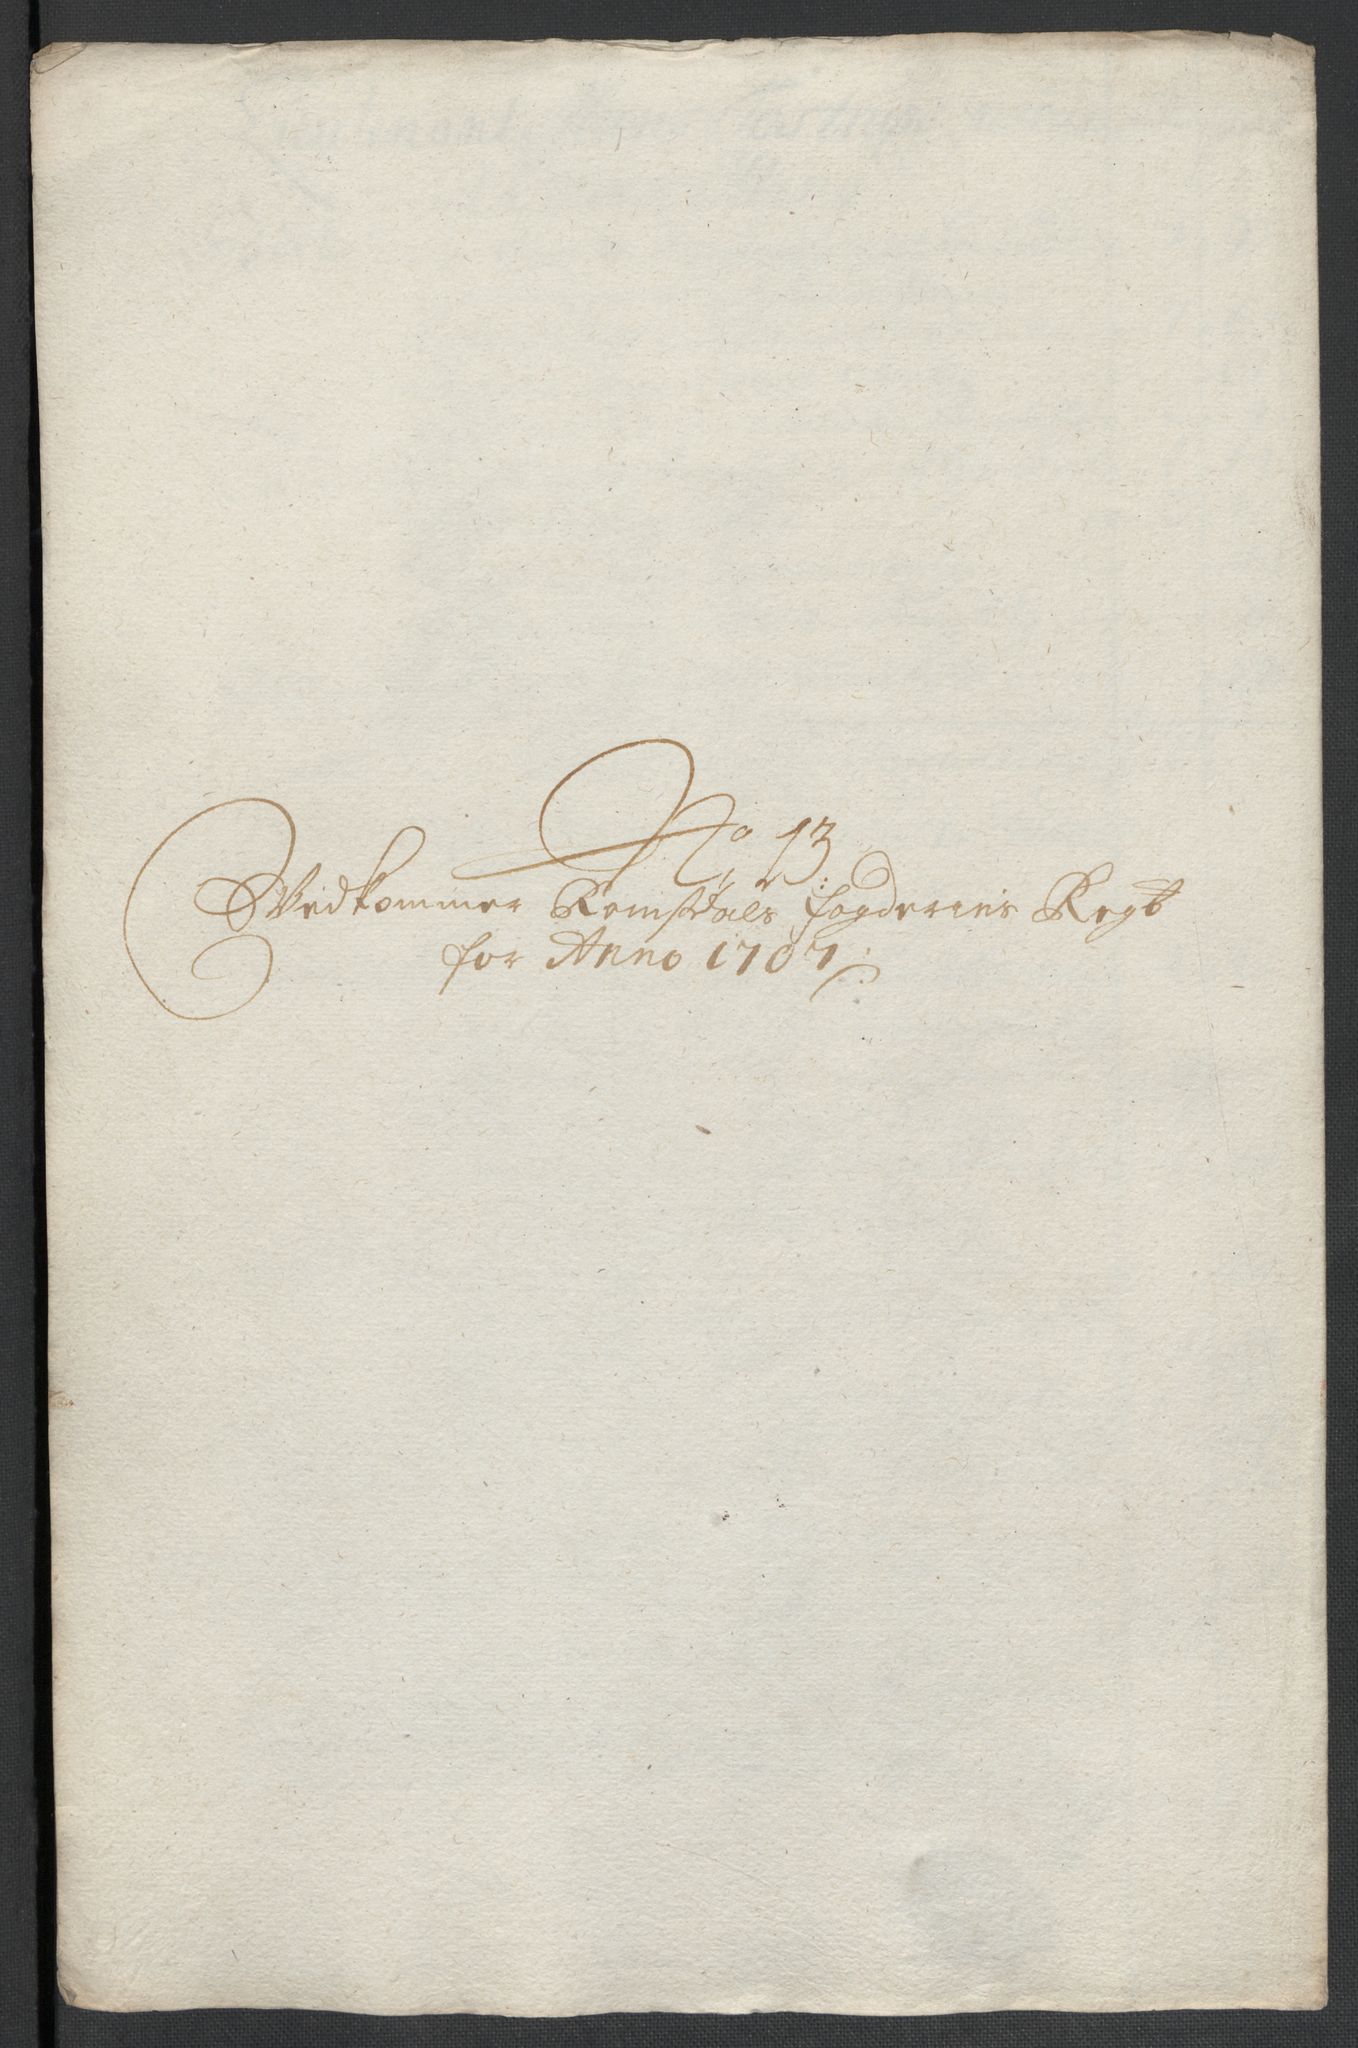 No 13
Vedkommer Romsdals fogderies Regb
for Anno 1707